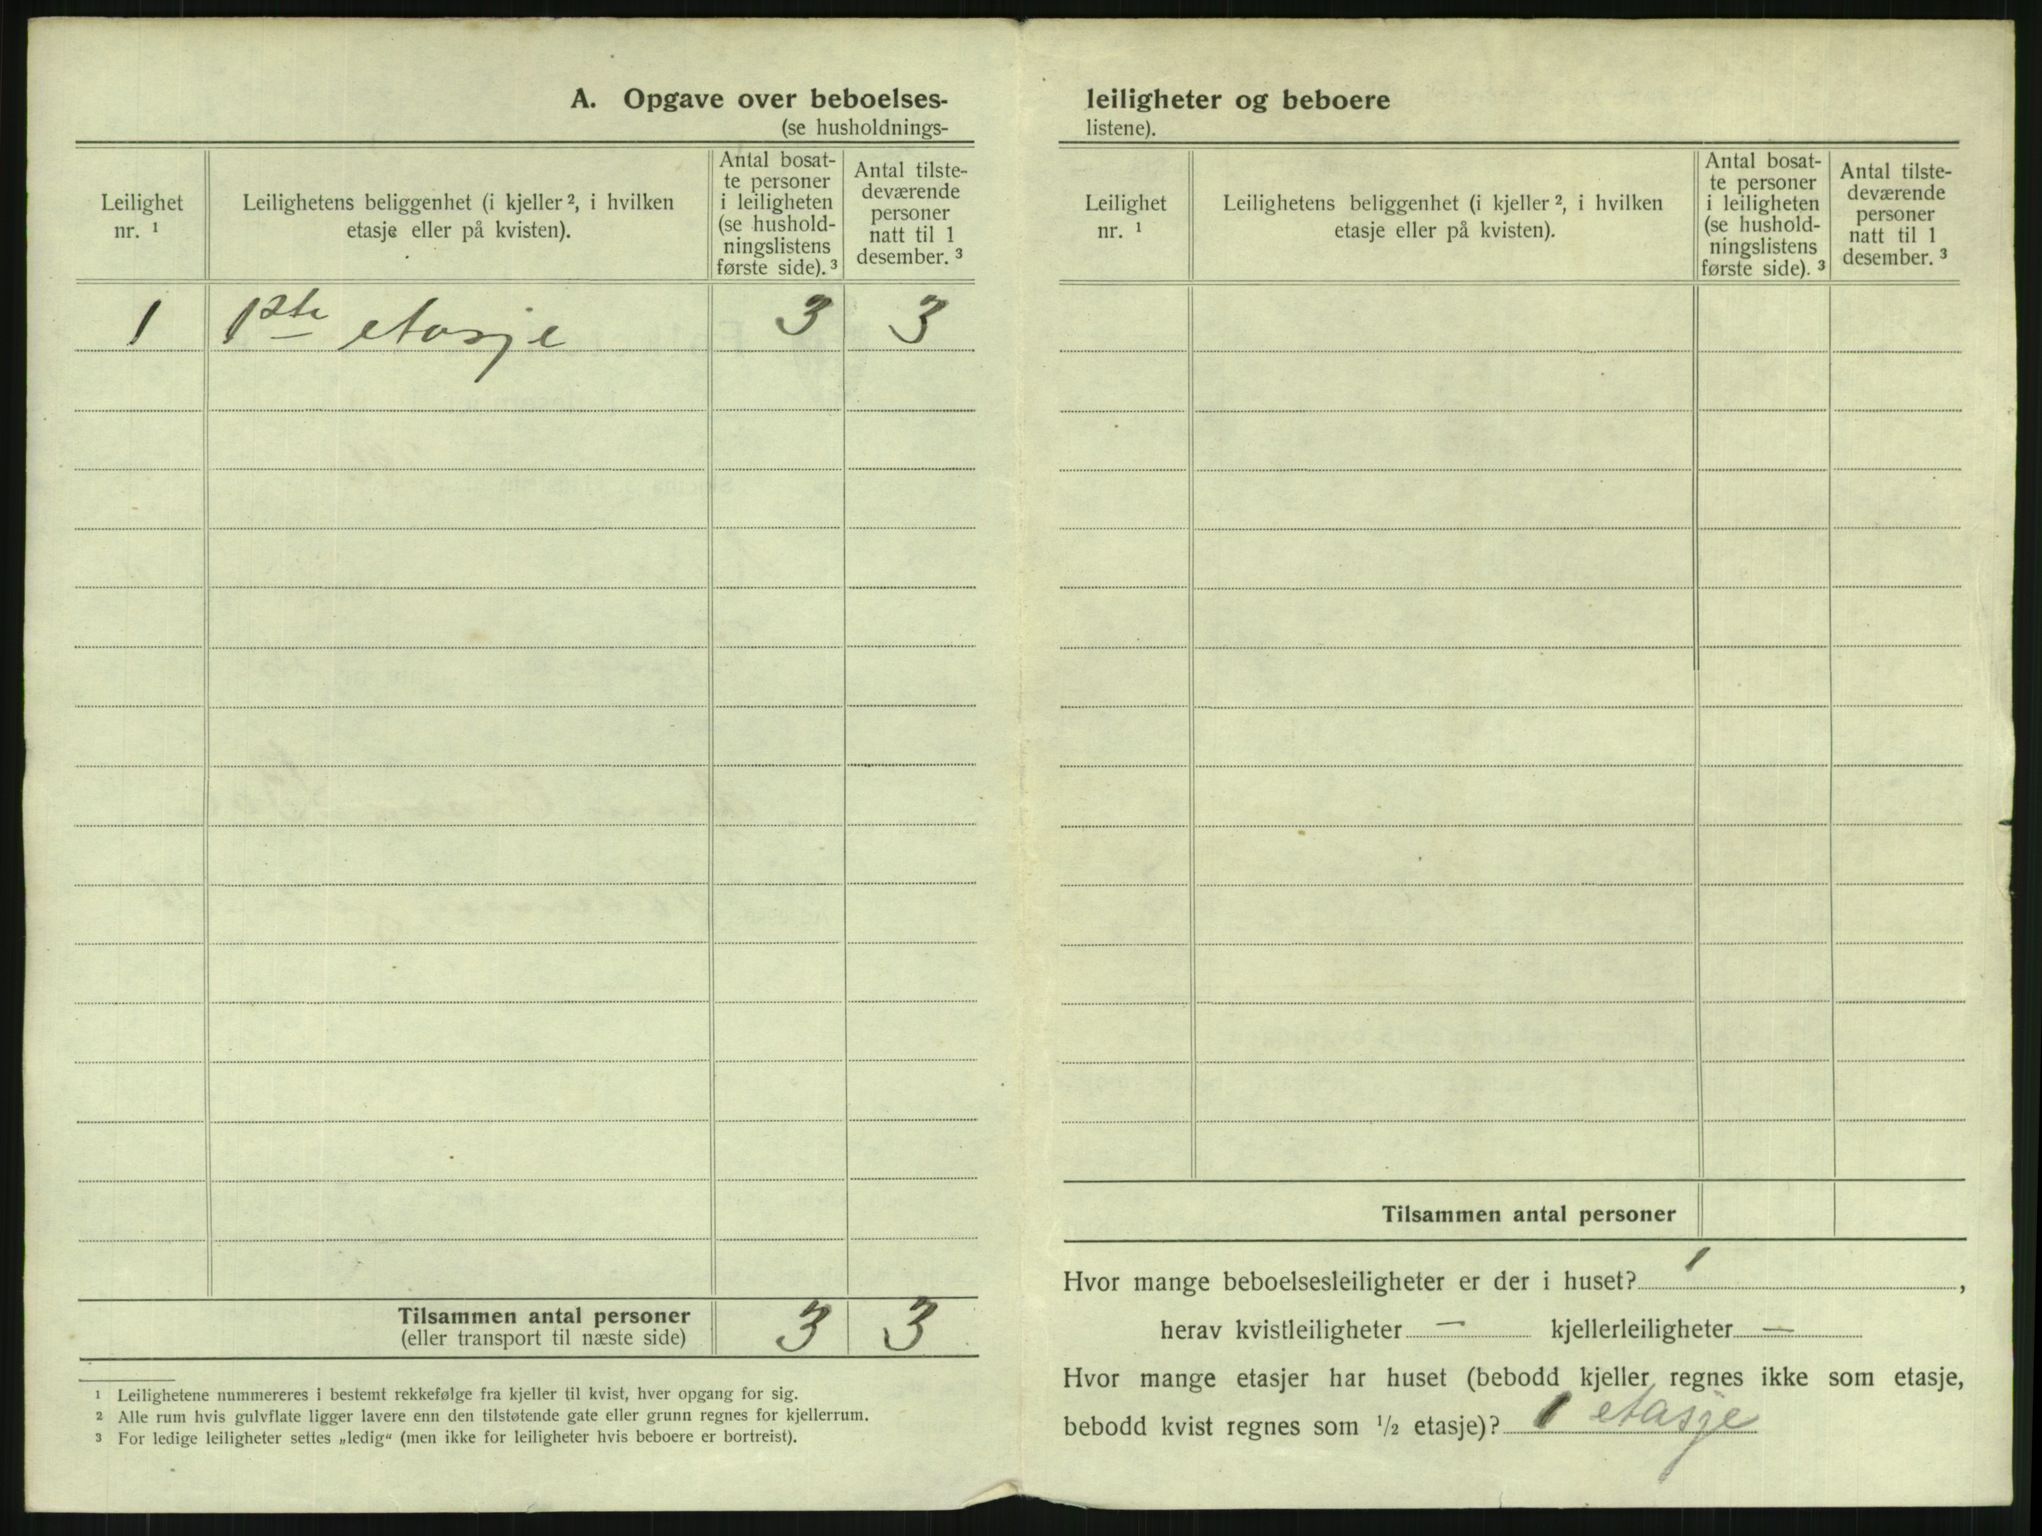 A. Opgave over beboelses-
(se husholdnings-
Leilighet
nr. ¹
Leilighetens beliggenhet (i kjeller ², i hvilken
etasje eller på kvisten).
Antal bosat-
te personer
i leiligheten
(se hushold-
ningslistens
første side). ³
Antal tilste-
deværende
personer
natt til 1
desember. ³
1 1ste etasje 3 3
Tilsammen antal personer 3 3
(eller transport til næste side)
¹ Leilighetene nummereres i bestemt rekkefølge fra kjeller til kvist, hver opgang for sig.
² Alle rum hvis gulvflate ligger lavere enn den tilstøtende gate eller grunn regnes for kjellerrum.
³ For ledige leiligheter settes „ledig“ (men ikke for leiligheter hvis beboere er bortreist).
leiligheter og beboere
listene).
Leilighet
nr. ¹
Leilighetens beliggenhet (i kjeller ², i hvilken
etasje eller på kvisten).
Antal bosat-
te personer
i leiligheten
(se hushold-
ningslistens
første side). ³
Antal tilste-
deværende
personer
natt til 1
desember. ³
Tilsammen antal personer
Hvor mange beboelsesleiligheter er der i huset? 1 ,
herav kvistleiligheter — kjellerleiligheter —
Hvor mange etasjer har huset (bebodd kjeller regnes ikke som etasje,
bebodd kvist regnes som ½ etasje)? 1 etasje